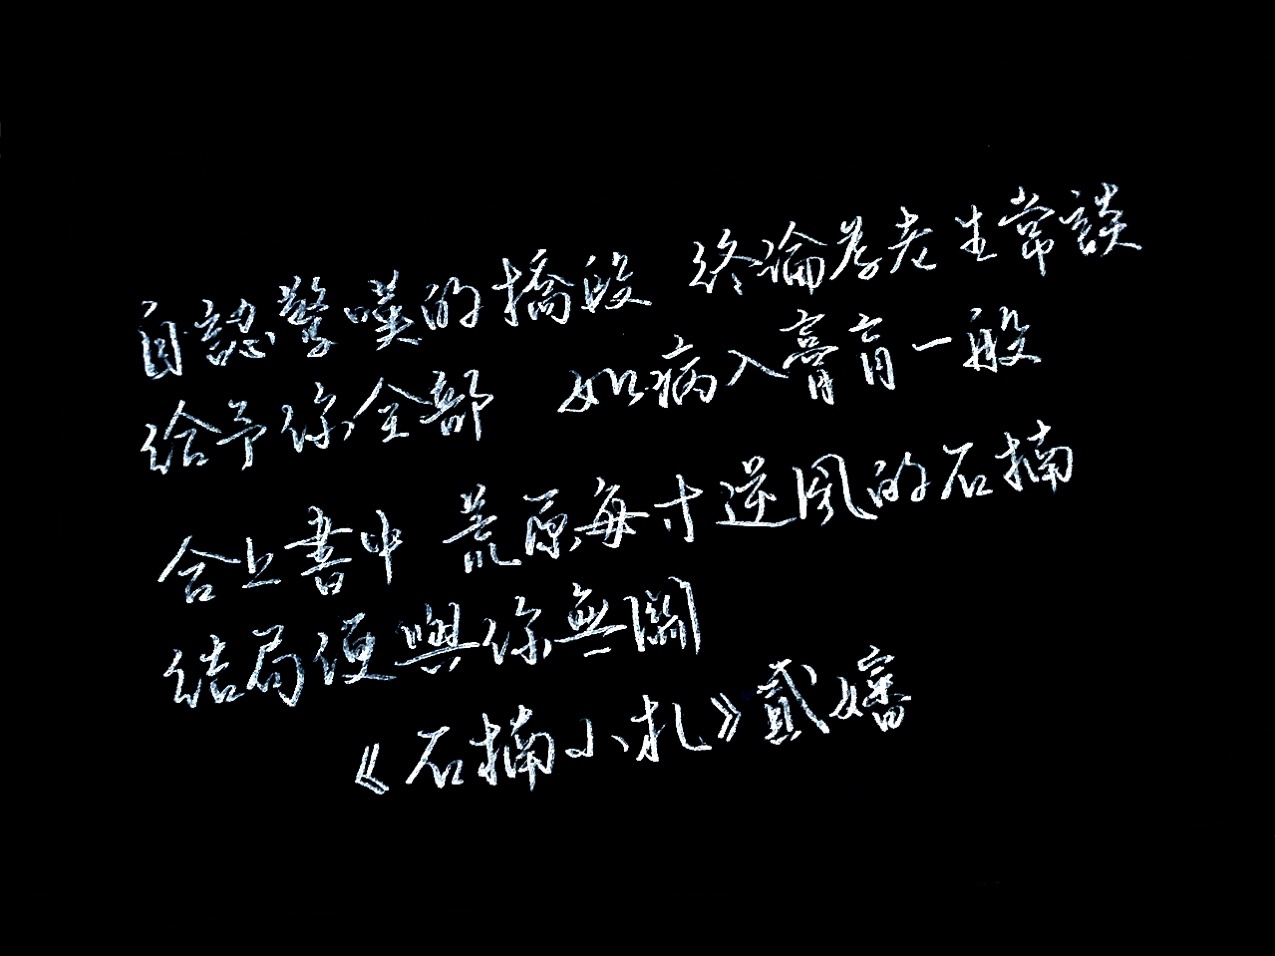 自認驚嘆的橋段 終論為老生常談
給予你全部 如病入膏肓一般
合上書中 荒原每寸逆風的石楠
結局便與你無關
《石楠小札》貳嬸